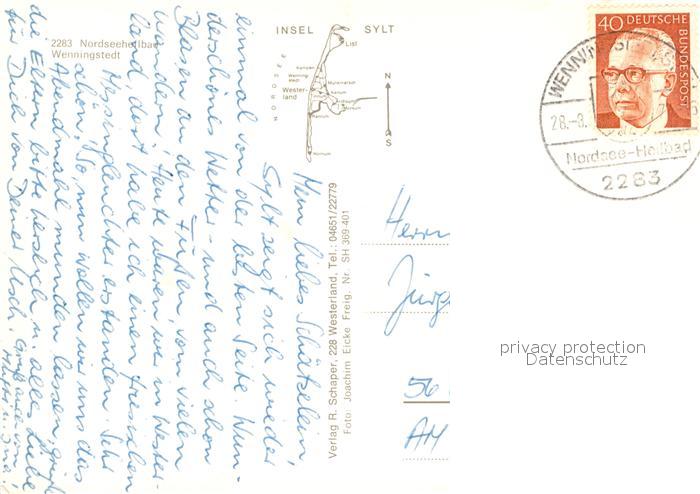 2283 Nordseeheilbad
Wenningstedt
INSEL SYLT
NORDSEE
List
Kampen
Wenning-
stedt
Wester-
land
Munkmarsch
Keitum
Archsum
Morsum
Rantum
Hörnum
N
S
40 DEUTSCHE
BUNDESPOST
WENNINGST
28.-8.
Nordsee-Heilbad
2283
Mein liebes Schätzelein,
Sylt zeigt sich wieder
einmal von der besten Seite. Wun-
derschönes Wetter - und auch schon
Blasen an den Füßen vom vielen
wandern. Heute waren wir in Wester-
land, dort habe ich einen friesischen
Messingleuchter erstanden. Sehr
schön! So, nun wollen wir uns das
Abendmahl munden lassen, grüß
die Eltern bitte herzlich u. alles Liebe
für Dich von Deiner Usch.
Verlag R. Schaper, 228 Westerland, Tel.: 04651/22779
Foto: Joachim Eicke Freig. Nr. SH 369-401
Herrn
Jürg
56
privacy protection
Datenschutz